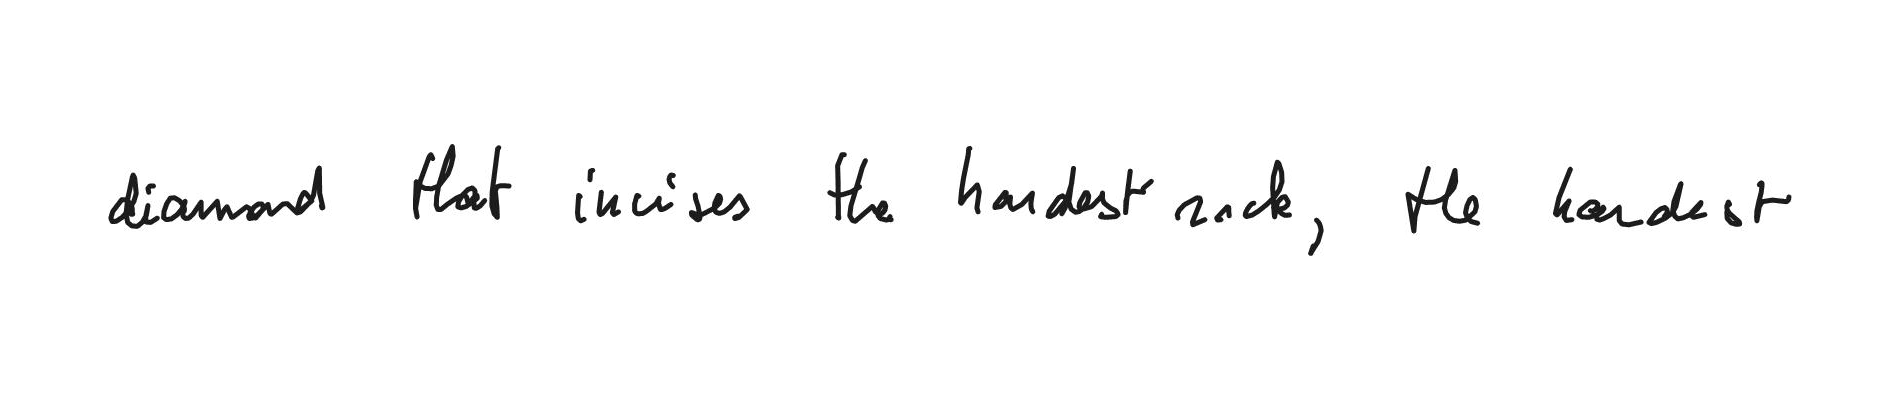 diamond that incises the hardest rock, the hardest